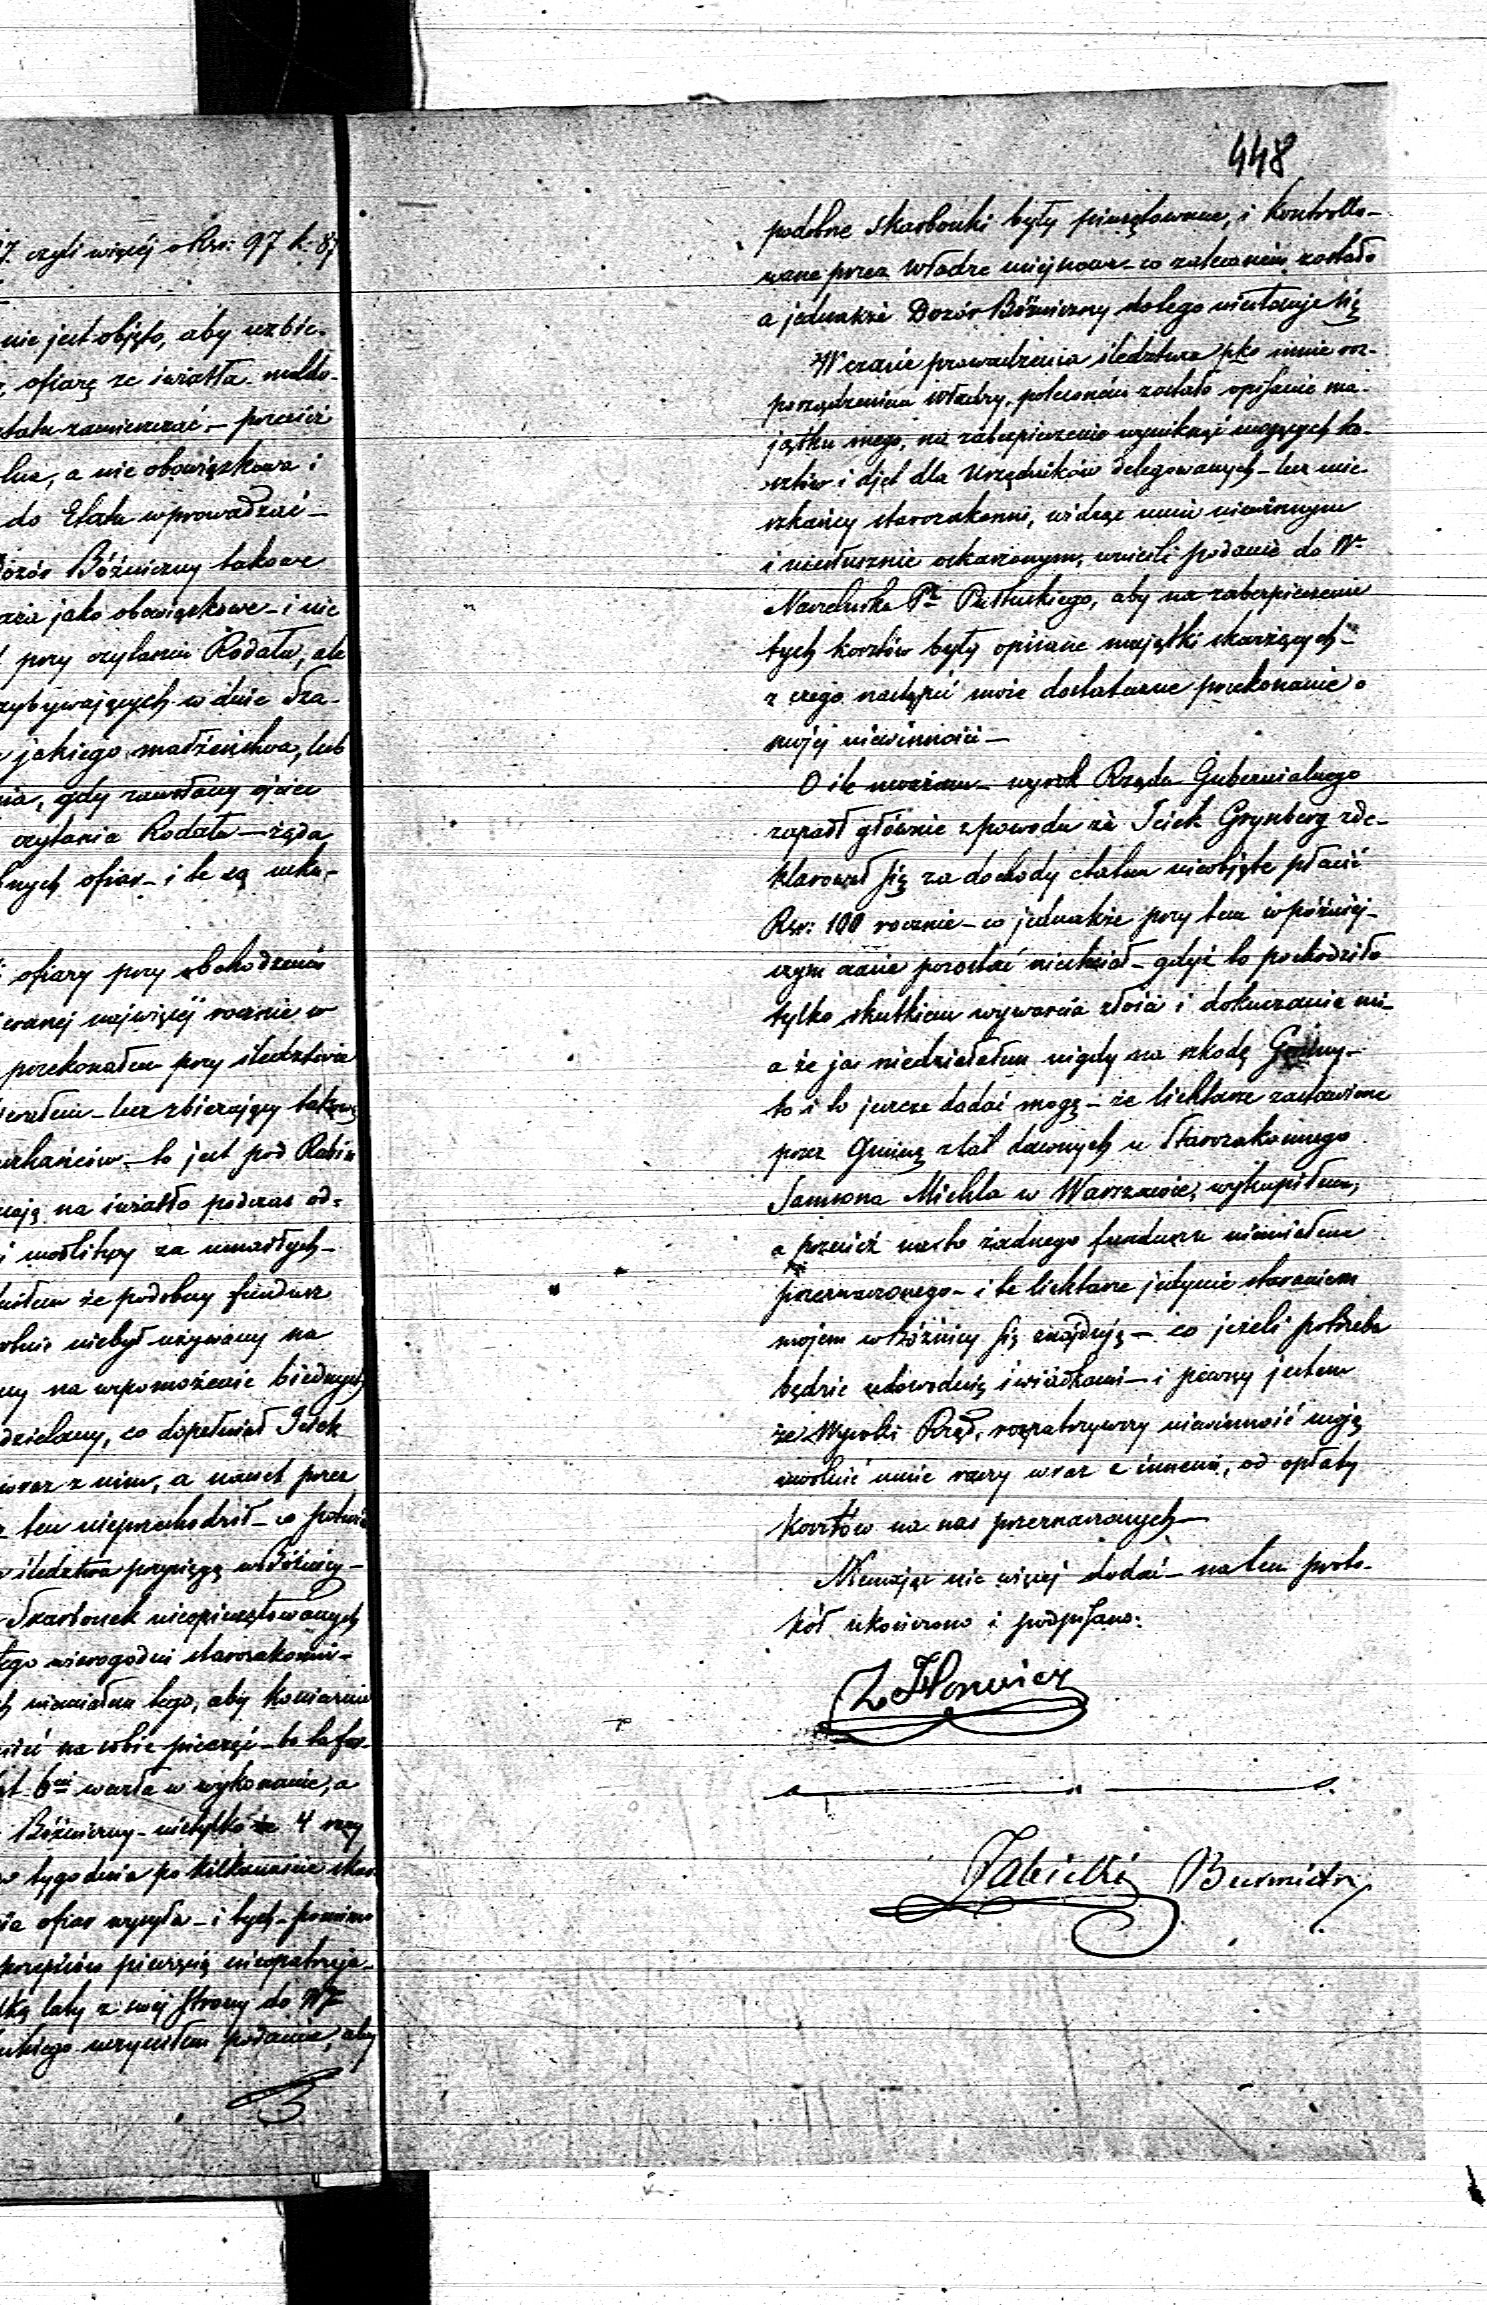 7. czyli więcéj o Rsr: 97 k. 87
nie jest objęto, aby uzbie-
ofiarę ze światła
zamieszczać — przecież
a nie obowiązkowa i
do Etatu wprowadzać —
Dozór Bóźniczny takowe
jako obowiązkowe — i nie
przy czytaniu Rodału, ale
przybywających w dnie Sza-
jakiego małżeństwa, lub
gdy zawołany ojciec
czytania Rodału — żąda
ofiar — i te są
ofiary przy obchodzeniu
najwięcéj rocznie w
przekonałem przy śledztwie
lecz zbierający takową
to jest pod Rabin
na światło podczas od-
modlitwy za umarłych —
że podobny fundusz
niebył używany na
na wspomożenie biednych
co dopełniał Icek
wraz z nim, a nawet przez
ten nieprzechodził — co
śledztwa przysięgą w Bóźnicy —
Skarbonek nieopieczętowanych
tego wiarogodni starozakonni —
niemiałem tego, aby
na sobie pieczęć — bo ta
6ciu weszła w wykonanie, a
Bóźniczny — nietylko że 4 razy
w tygodniu po kilkanaście
ofiar wysyła — i tych — pomimo
przepisów pieczęcią nieopatruje —
laty z méj strony do W
podanie, aby
448
podobne skarbonki były pieczętowane, i kontrollo-
wane przez Władze miejscowe — co zaleconém zostało
a jednakże Dozór Bóźniczny do tego niestosuje się
W czasie prowadzenia śledztwa pko mnie roz-
porządzeniem Władzy, poleconém zostało opisanie ma-
jątku mego, na zabezpieczenie wyniknąć mogących ko-
sztów i djet dla Urzędników delegowanych — lecz mie-
szkańcy starozakonni, widząc mnie niewinnym
i niesłusznie oskarżonym, wnieśli podanie do W
Naczelnika Ptu Pułtuskiego, aby na zabezpieczenie
tych kosztów były opisane majątki skarżących —
z czego nastąpić może dostateczne przekonanie o
mojéj niewinności —
O ile uważam — wyrok Rządu Gubernialnego
zapadł głównie z powodu że Icek Grynberg zde-
klarował się za dochody etatem nieobjęte płacić
Rsr: 100 rocznie — co jednakże przy tem w późniéj-
szym czasie pozostać niechciał — gdyż to pochodziło
tylko skutkiem wywarcia złości i dokuczania mi —
a że ja niedziałałem nigdy na szkodę Gminy —
to i to jeszcze dodać mogę — że lichtarze zastawione
przez Gminę z lat dawnych u Starozakonnego
Samsona Michla w Warszawie, wykupiłem,
a przecież na to żadnego funduszu niemiałem
przeznaczonego — i te lichtarze jedynie staraniem
mojem w Bóźnicy się znajdują — co jeżeli potrzeba
będzie udowodnię świadkami — i pewny jestem
że Wysoki Rząd, rozpatrzywszy niewinność moją
uwolnić mnie raczy wraz z innemi, od opłaty
kosztów na nas przeznaczonych —
Niemając nic więcéj dodać — na tem proto-
kół ukończono i podpisano:
Burmistrz